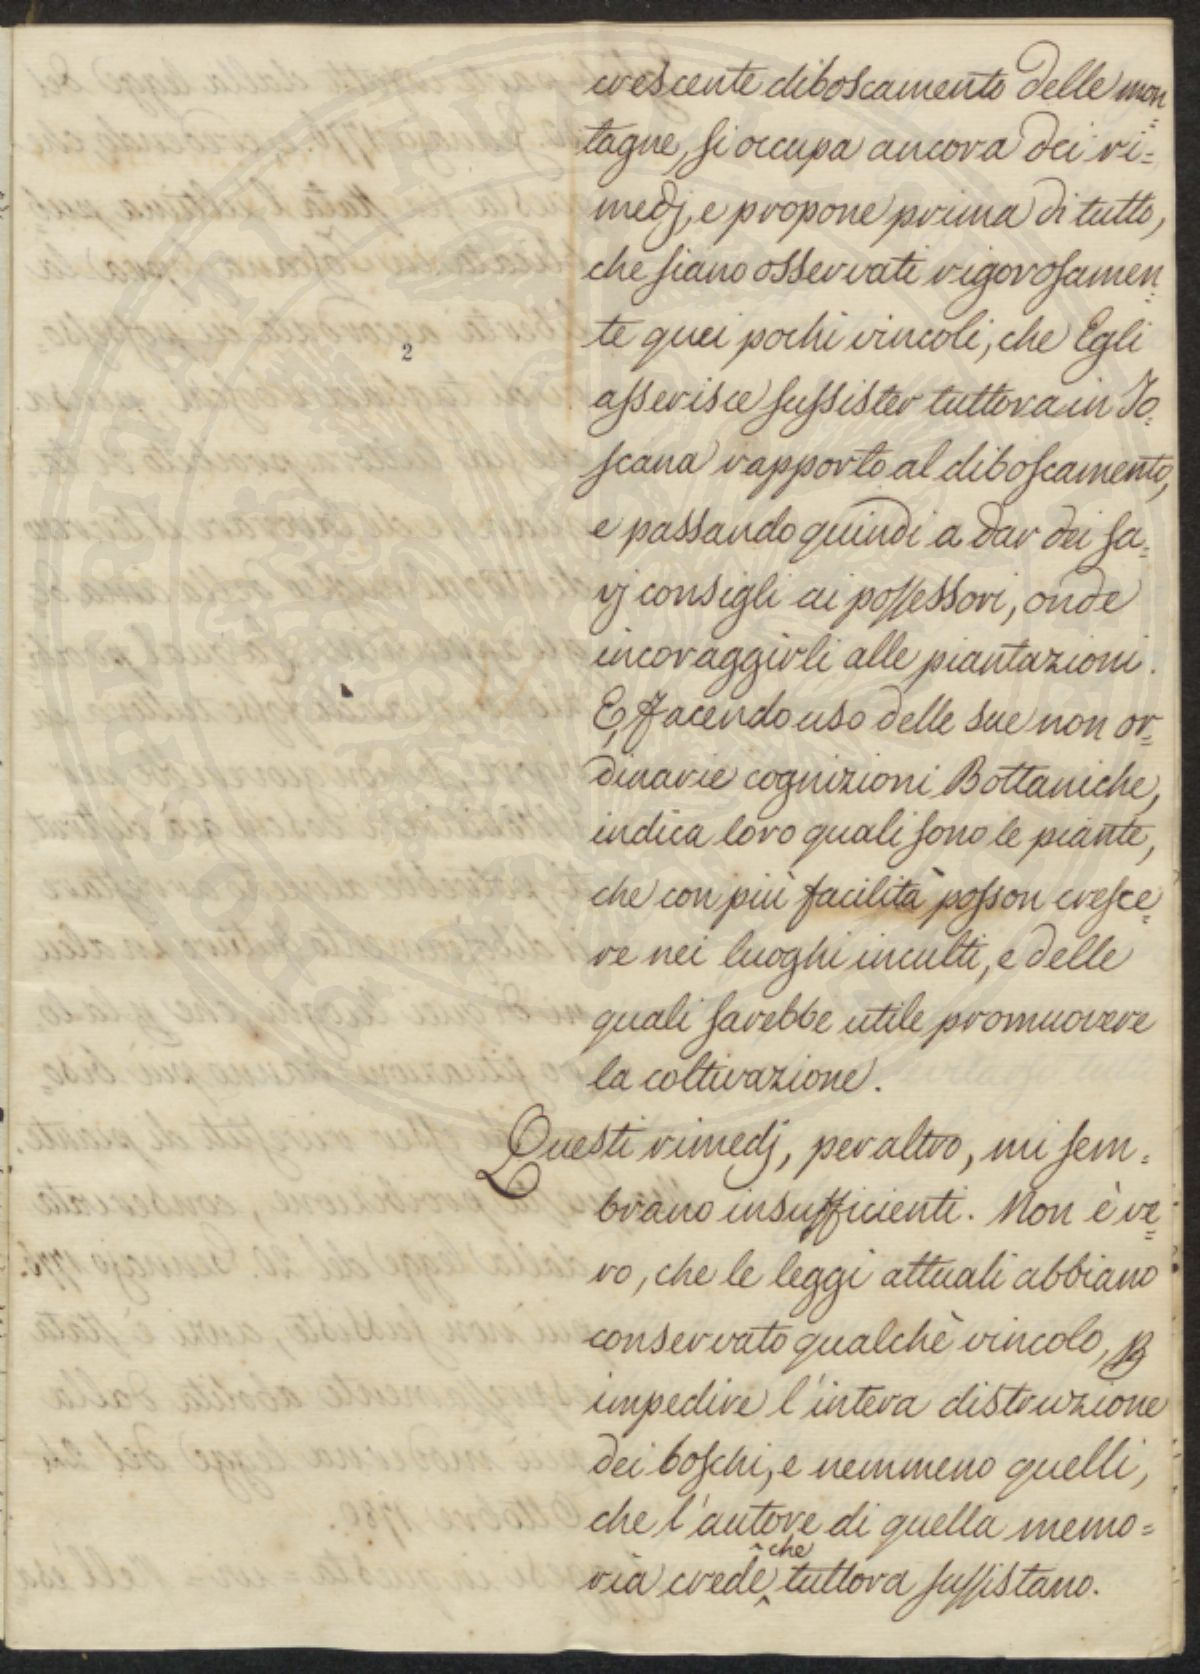 crescente diboscamento delle mon=
tagne, si occupa ancora dei ri=
medj, e propone prima di tutto,
che siano osservati rigorosamen=
te quei pochi vincoli, che Egli
asserisce sussister tuttora in To=
scana rapporto al diboscamento,
e passando quindi a dar dei sa=
vj consigli ai possessori, onde
incoraggirli alle piantazioni.
E, facendo uso delle sue non or=
dinarie cognizioni Bottaniche,
indica loro quali sono le piante,
che con più facilità posson cresce=
re nei luoghi inculti, e delle
quali sarebbe utile promuovere
la coltivazione.
Questi rimedj, per altro, mi sem=
brano insufficienti. Non è ve=
ro, che le leggi attuali abbiano
conservato qualchè vincolo,
impedire l'intera distruzione
dei boschi, e nemmeno quelli,
che l'autore di quella memo=
ria crede, che tuttora sussistano.
2